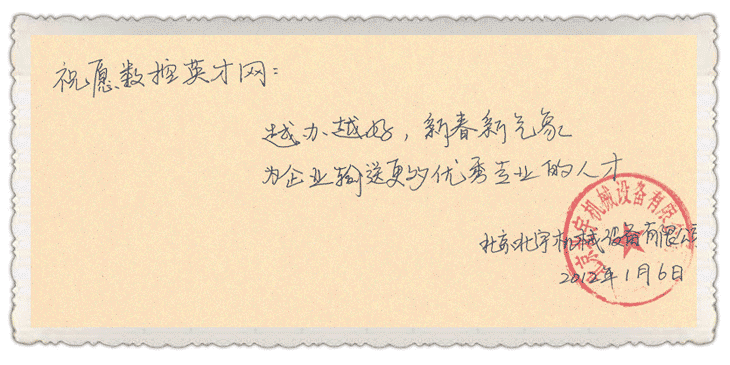 祝愿数控英才网:
越办越好，新春新气象
为企业输送更多优秀专业的人才
北京北宇机械设备有限公司
2012年1月6日
北京北宇机械设备有限公司